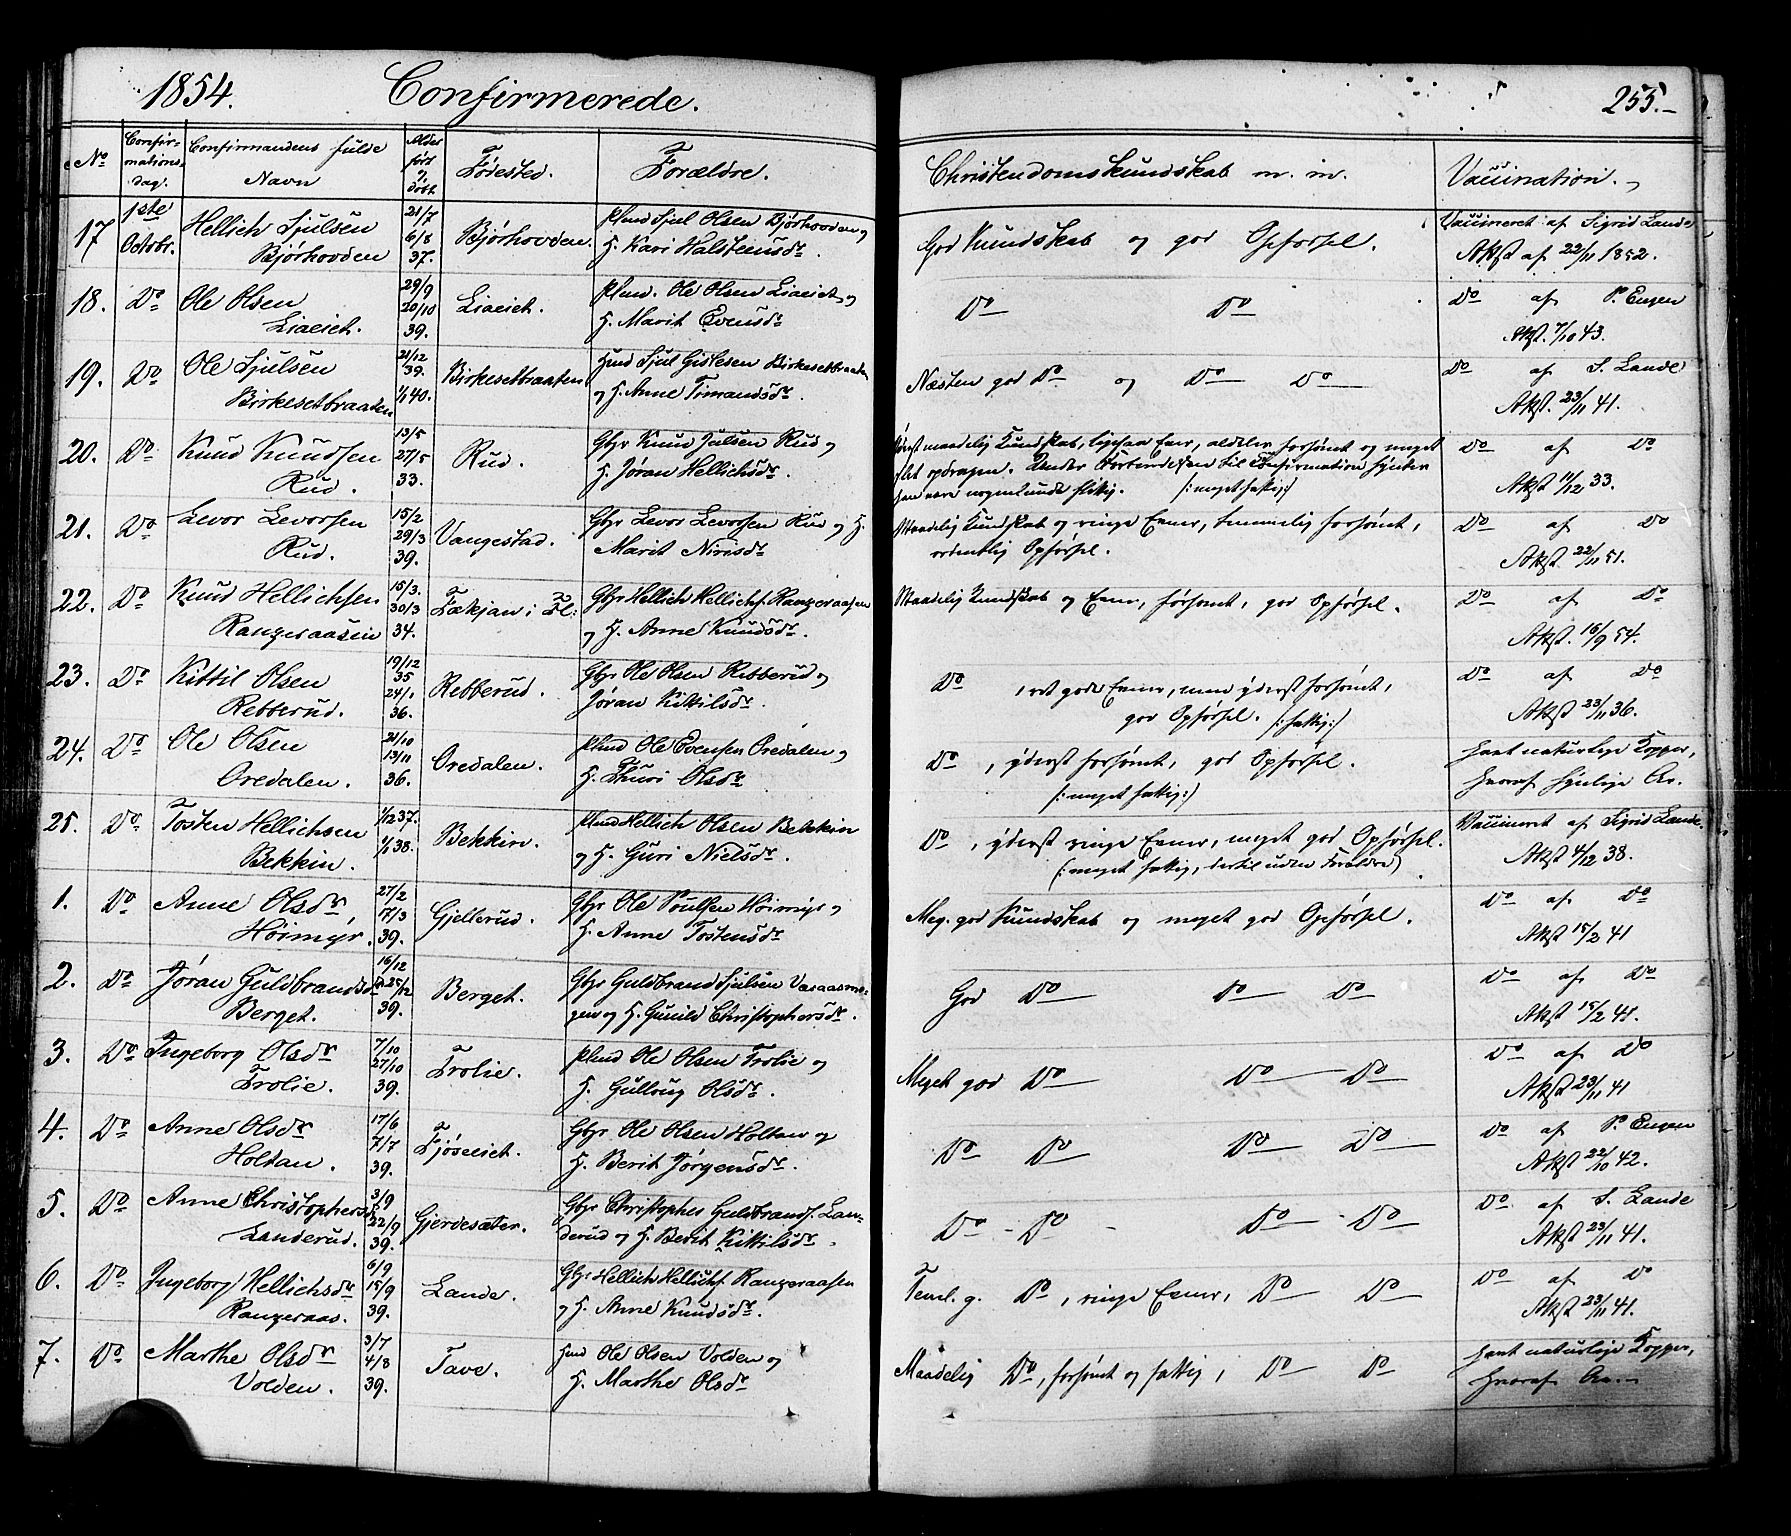 1854. Confirmerede. 255.
No Confirmationsdag. Confirmandens fulde Navn Alder født & døbt Fødested. Forældre. Christendomskundskab m. m. Vaccination.
17 1ste Octobr. Hellich Sjulsen Bjørhovden 21/7 6/8 37. Bjørhovden. Plmd Sjul Olsen Bjørhovden og H. Kari Halstensdr. God Kundskab og god Opførsel. Vaccineret af Sigrid Lande Attst af 22/11 1852.
18. Do Ole Olsen Liaeiet. 29/9 20/10 39. Liaeiet. Plmd. Ole Olsen Liaeiet og H. Marit Evensdr Do Do Do af P. Engen Attst. 7/10 43.
19. Do Ole Sjulsen Birkesetbraaten 21/12 39. 1/1 40. Birkesetbraaten Hmd Sjul Gislesen Birkesetbraaten og H. Anne Tomandsdr. Næsten god Do og Do Do Do af S. Lande Attst. 23/11 41.
20. Do Knud Knudsen Rud. 13/5 27/5 33. Rud. Gbr Knud Julsen Rud og H. Jøran Hellichsdr. maadelig Kundskab, ligesaa Evner, aldeles forsømt og meget slet opdragen. Under Forberedelsen til Confirmation synkes han være nogenlunde flittig. (:meget fattig:) Do af Do Attst 11/12 33.
21. Do Levor Levorsen Rud. 15/2 29/3 39. Vangestad. Gbr Levor Levorsen Rud og H. Marit Nirisdr Maadelig Kundskab og ringe Evner, temmelig forsømt, ordentlig Opførsel. Do af Do Attst 22/11 51.
22. Do Knud Hellichsen Rangeraasen 15/3. 30/3 34. Tækjan i Fl: Gbr Hellich Hellichs. Rangeraasen og H. Anne Knudsdr. Maadelig Kundskab og Evner, forsømt, god Opførsel. Do af Do Attst. 16/9 54.
23. Do Kittil Olsen Rebberud. 19/12 35 24/1. 36. Rebberud. Gbr Ole Olsen Rebberud og Jøran Kittilsdr. Do, ret gode Evner, men yderst forsømt, god Opførsel. (:fattig:) Do af Do Attst 23/11 36.
24. Do Ole Olsen Oredalen. 21/10 13/11 36. Oredalen. Plmd Ole Evensen Oredalen og H. Thuri Olsdr Do, yderst forsømt, god Opførsel. (:meget fattig:) Havt naturlige Kopper, hvoraf synlige Ar.
25. Do Tosten Hellichsen Bekkin. 1/12 37. 1/1 38. Bekkin. Plmd Hellich Olsen Bekkin og H. Guri Nielsdr. Do, yderst ringe Evner, meget god Opførsel. (:meget fattig, dertil uden Forældre) Vaccineret af Sigrid Lande. Attst 4/12 38.
1. Do Anne Olsdr Høimyr. 27/2 17/3 39. Gjellerud. Gbr Ole Poulsen Høimyr og H. Anne Tostensdr. Meg. god Kundskab og meget god Opførsel. Do af Do Attst 15/2 41
2. Do Jøran Guldbrandsdr Berget. 16/12 25/12 39. Berget. Gbr Guldbrand Sjulsen Vasaasmogen og H. Gunild Christophersdr. God Do Do Do Do af Do Attst 15/2 41.
3. Do Ingeborg Olsdr Trolie. 7/10 27/10 39. Trolie. Plmd Ole Olsen Trolie og H. Gullaug Olsdr. Meget god Do Do Do Do af Do Attst 23/11 41
4. Do Anne Olsdr Holtan. 17/6 7/7 39. Tjøseiet. Gbr Ole Olsen Holtan og H. Berit Jørgensdr. Do Do Do Do Do af P. Engen Attst 22/10 42.
5. Do Anne Christophersdr Landerud. 3/9 22/9 39. Gjerdesæter. Gbr Christopher Guldbrands. Landerud og H. Berit Kittilsdr. Do - Do - Do - Do Do af S. Lande Attst 23/11 41.
6. Do Ingeborg Hellichsdr Rangeraas. 6/9 15/9 39. Lande. Gbr Hellich Hellichs. Rangeraasen og H. Anne Knudsdr. Teml. g. Do, ringe Evner, Do Do Do af Do Attst 23/11 41.
7. Do Marthe Olsdr Volden. 3/7 4/8 39. Tave. Hmd Ole Olsen Volden og H. Marthe Olsdr Maadelig Do, forsømt og fattig, Do Do Havt naturlige Kopper, hvoraf Ar.